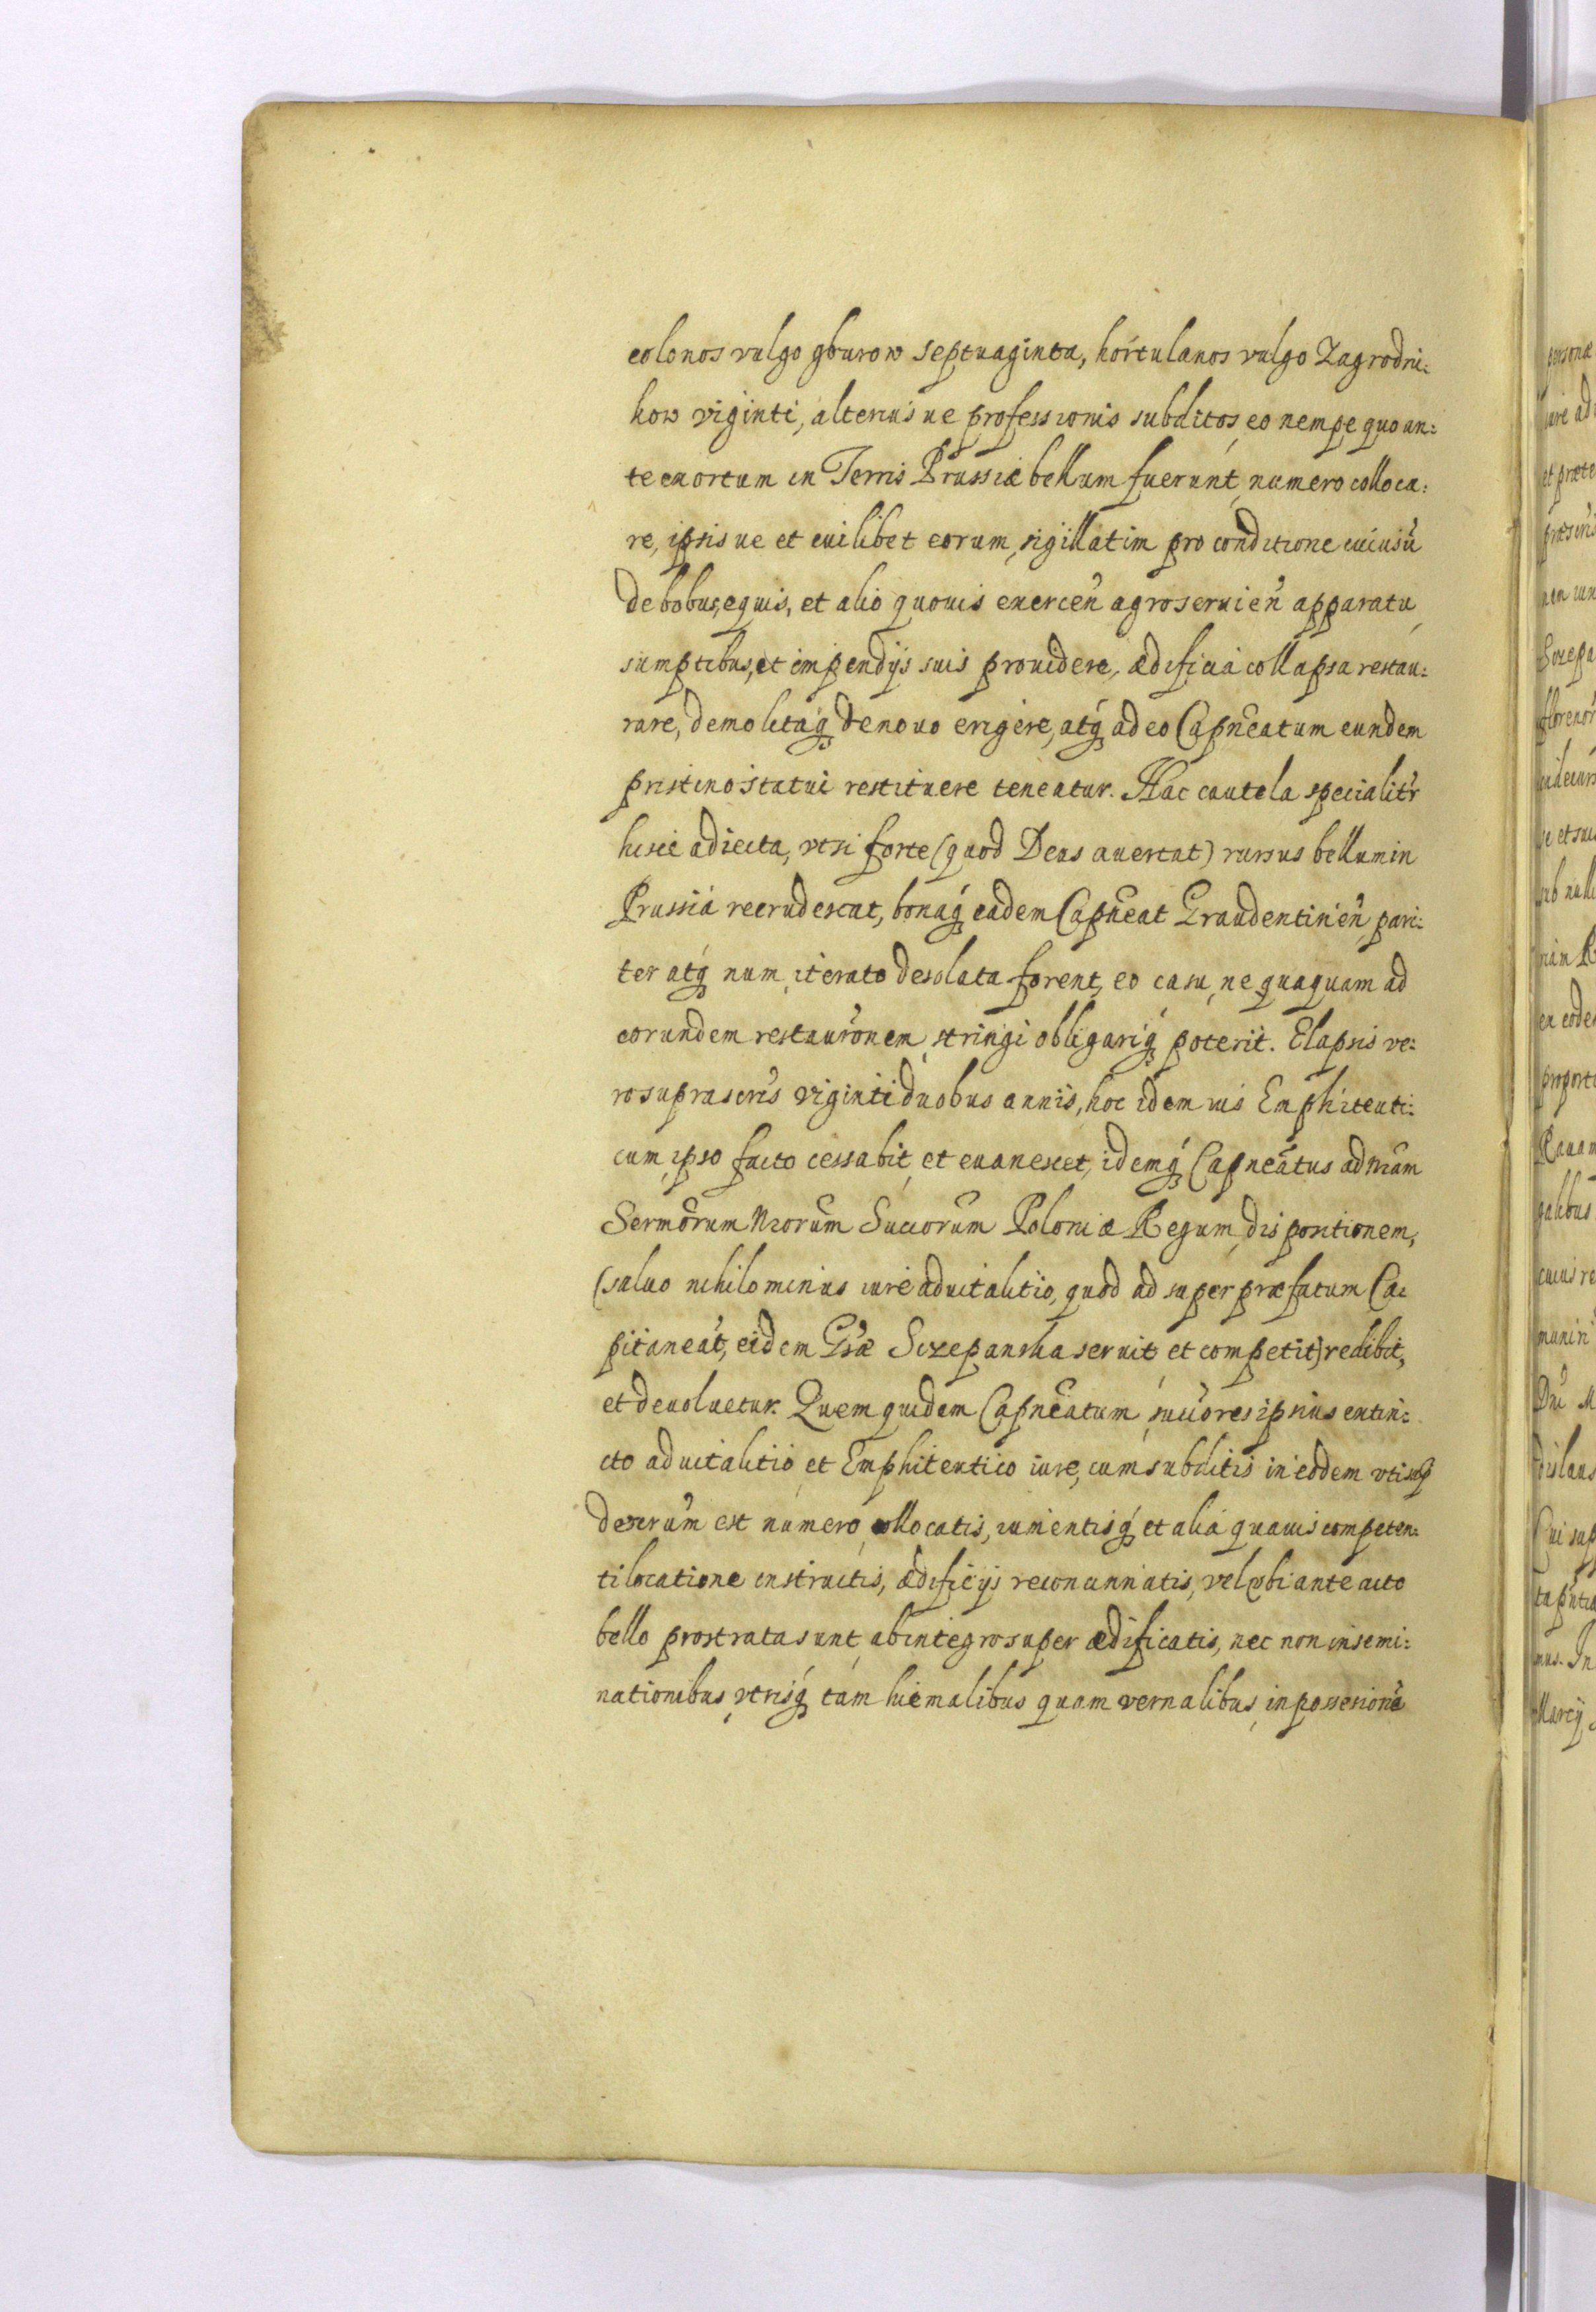 colonos vulgo gburow septuaginta, hortulanos vulgo Zagrodni:
kow viginti, alterius ue professionis subditos, eo nempe quo an:
te exortum in Terris Prussiæ bellum fuerunt, numero colloca:
re, ipsis ue et cuilibet eorum, sigillatim pro conditione cuiusũ
de bobus, equis, et alio quouis exercen̄ agro seruien̄ apparatu,
sumptibus, et impendijs suis prouidere, ædificia collapsa restau:
rare, demolitaq; de nouo erigere, atq; adeo Capneatum eundem
pristino statui restituere teneatur. Hac cautela specialitr
hisce adiecta, vt si forte (quod Deus auertat) rursus bellum in
Prussiá recrudescat, bonaq; eadem Capneat Graudentinen̄, pari:
ter atq; num, iterato desolata forent, eo casu, ne quaquam ad
eorundem restaurõnem, stringi obligariq; poterit. Elapsis ve:
ro suprascris viginti duobus annis, hoc idem ius Emphiteuti:
cum, ipso facto cessabit, et euanescet, idemq; Capneatus ad nram
Sermorum nrorum Succorum Poloniæ Regum, dispositionem,
(saluo nihilominus iure aduitalitio, quod ad super præfatum Ca:
pitaneat, eidem Gsæ Sczepanska seruit et competit) redibit,
et deuoluetur. Quem quidem Capneatum, succores ipsius extin:
cto aduitalitio et Emphiteutico iure, cum subditis in eodem vti sup
descrum est numero, collocatis, iumentisq; et alia quauis competen:
ti locatione instructis, ædificijs reconcinnatis, vel vbi ante acto
bello prostrata sunt, ab integro super ædificatis, nec non insemi:
nationibus, vtrisq; tam hiemalibus quam vernalibus, in possesione